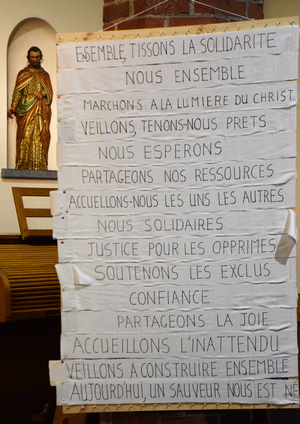 ESEMBLE, TISSONS LA SOLIDARITE
NOUS ENSEMBLE
MARCHONS A LA LUMIERE DU CHRIST
VEILLONS, TENONS-NOUS PRETS
NOUS ESPERONS
PARTAGEONS NOS RESSOURCES
ACCUEILLONS-NOUS LES UNS LES AUTRES
NOUS SOLIDAIRES
JUSTICE POUR LES OPPRIMES
SOUTENONS LES EXCLUS
CONFIANCE
PARTAGEONS LA JOIE
ACCUEILLONS L'INATTENDU
VEILLONS A CONSTRUIRE ENSEMBLE
AUJOURD'HUI, UN SAUVEUR NOUS EST NE